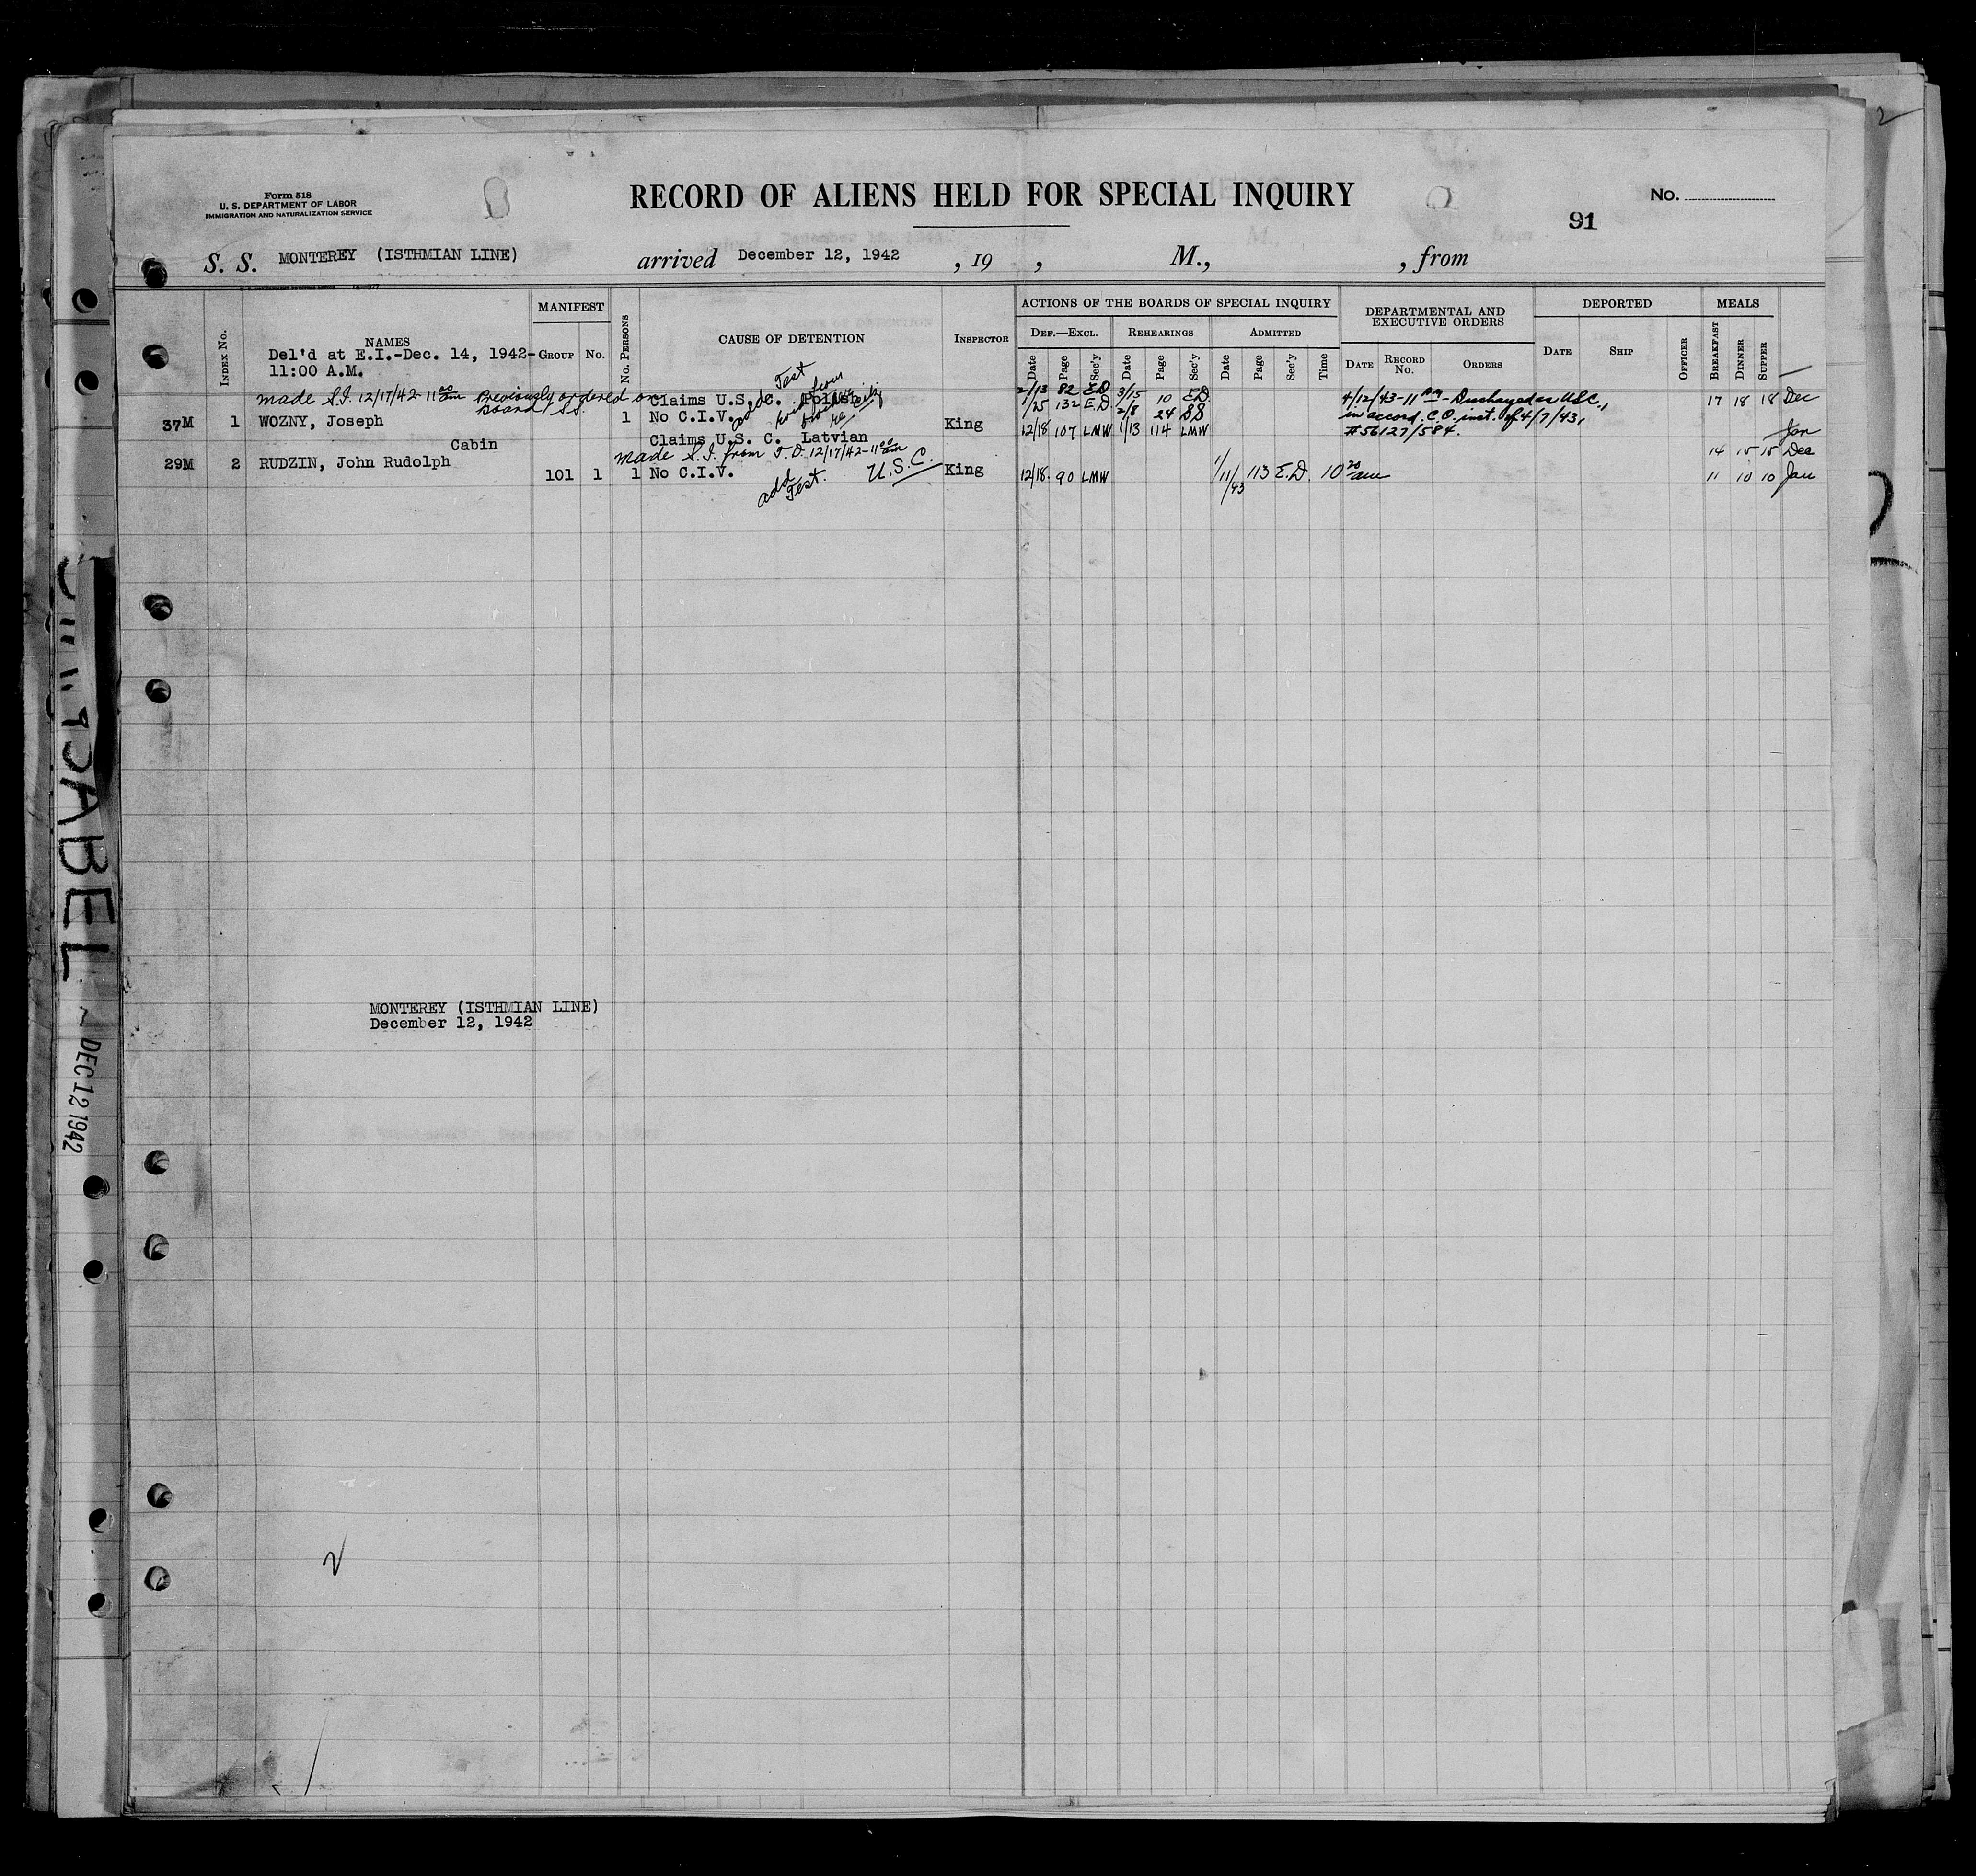 Form 518
U. S. DEPARTMENT OF LABOR
IMMIGRATION AND NATURALIZATION SERVICE
RECORD OF ALIENS HELD FOR SPECIAL INQUIRY
No.
91
S. S. MONTEREY (ISTHMIAN LINE) arrived December 12, 1942 , 19 , M., , from
INDEX No.
NAMES
Del'd at E.I.-Dec. 14, 1942-
11:00 A.M.
MANIFEST
GROUP No.
No. PERSONS
CAUSE OF DETENTION
INSPECTOR
ACTIONS OF THE BOARDS OF SPECIAL INQUIRY
DEF.—EXCL. REHEARINGS ADMITTED
Date Page Sec'y Date Page Sec'y Date Page Sec'y Time
DEPARTMENTAL AND EXECUTIVE ORDERS
DATE RECORD No. ORDERS
DEPORTED
DATE SHIP OFFICER
MEALS
BREAKFAST DINNER SUPPER
made S.I. 12/17/42-11 00 am Previously ordered
Board S.I.
Test
Claims U.S.C. Polish
2/13 82 E.D. 3/15 10 E.D.
1/25 132 E.D. 2/8 24 SS
4/12/43-11 - Discharged as U.S.C.,
in accord. C.O. inst. of 4/7/43,
#56127/584.
17 18 18 Dec
Jan
37M 1 WOZNY, Joseph 1 No C.I.V. King 12/18 107 LMW 1/13 114 LMW
Cabin
Claims U.S. C. Latvian
made S.I. from T.D. 12/17/42-11 00 am
14 15 15 Dec
29M 2 RUDZIN, John Rudolph 101 1 1 No C.I.V. U.S.C. King 12/18 90 LMW 1/11/43 113 E.D. 10 20 am
11 10 10 Jan
add
Test.
MONTEREY (ISTHMIAN LINE)
December 12, 1942
DEC 12 1942
2